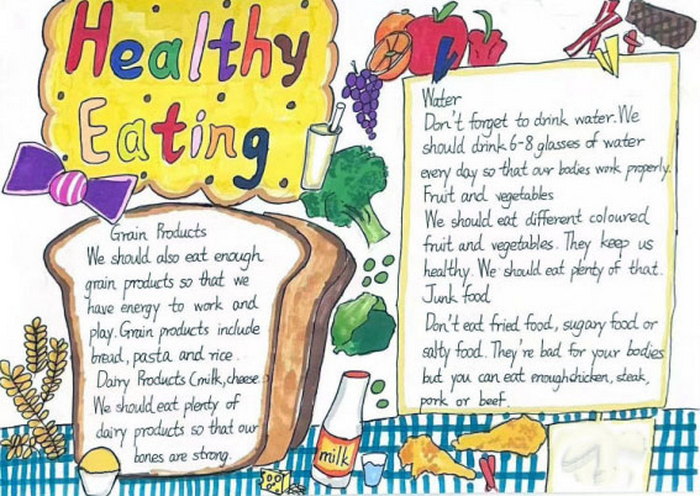 Healthy
Eating
Grain Products
We should also eat enough
grain products so that we
have energy to work and
play. Grain products include
bread, pasta and rice.
Dairy Products (milk, cheese)
We should eat plenty of
dairy products so that our
bones are strong.
milk
Water
Don't forget to drink water. We
should drink 6-8 glasses of water
every day so that our bodies work properly.
Fruit and vegetables
We should eat different coloured
fruit and vegetables. They keep us
healthy. We should eat plenty of that.
Junk food
Don't eat fried food, sugary food or
salty food. They're bad for your bodies
but you can eat enough chicken, steak,
pork or beef.